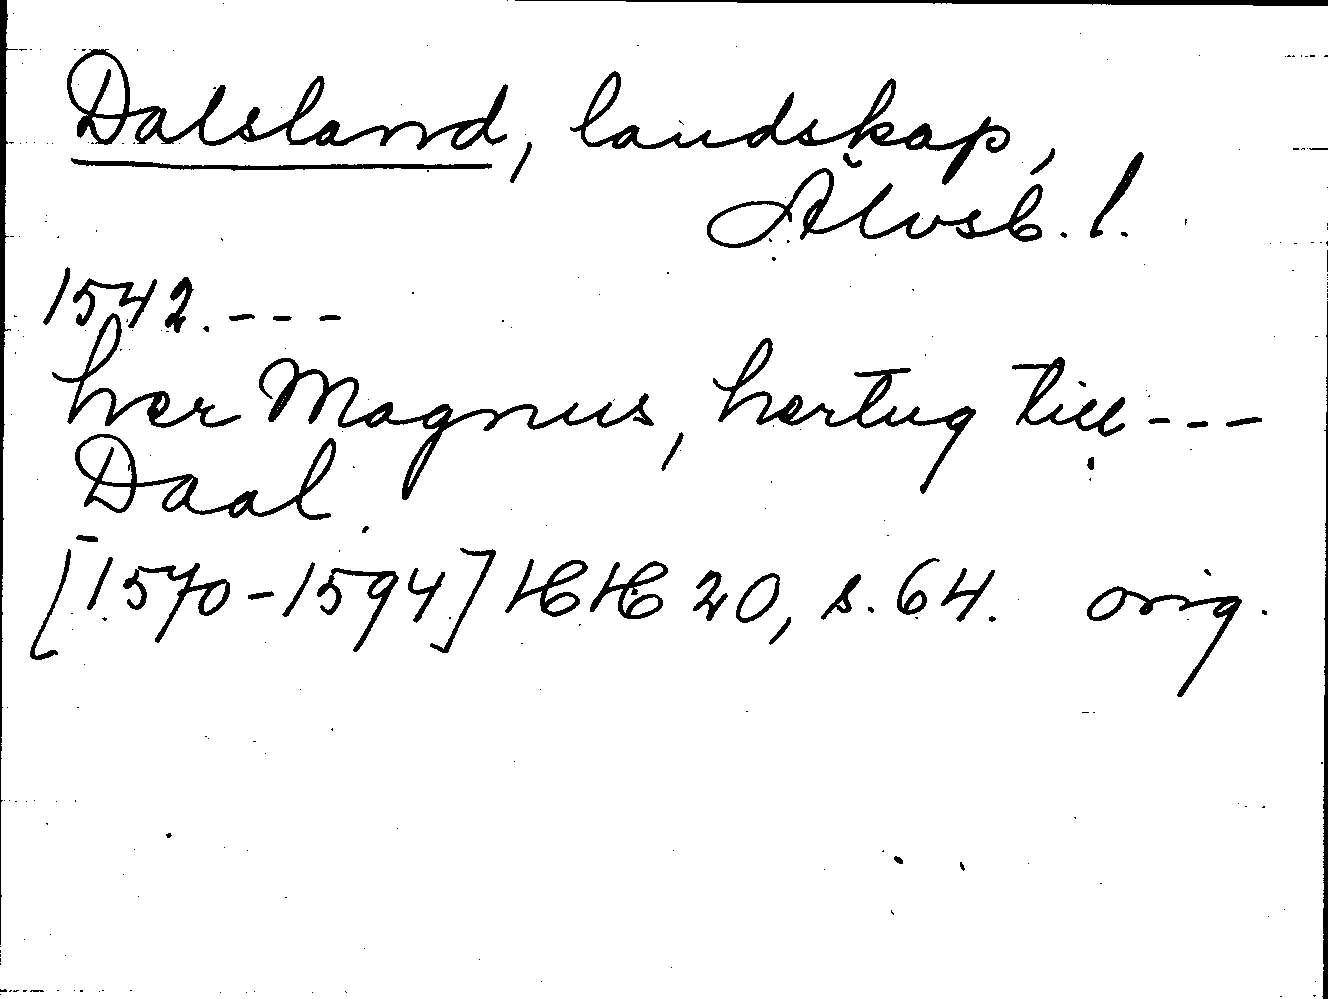 Dalsland, landskap,
Älvsb. l.
1542. ---
her Magnus, hertug till ---
Daal.
[1570-1594] HH 20, s. 64. orig.